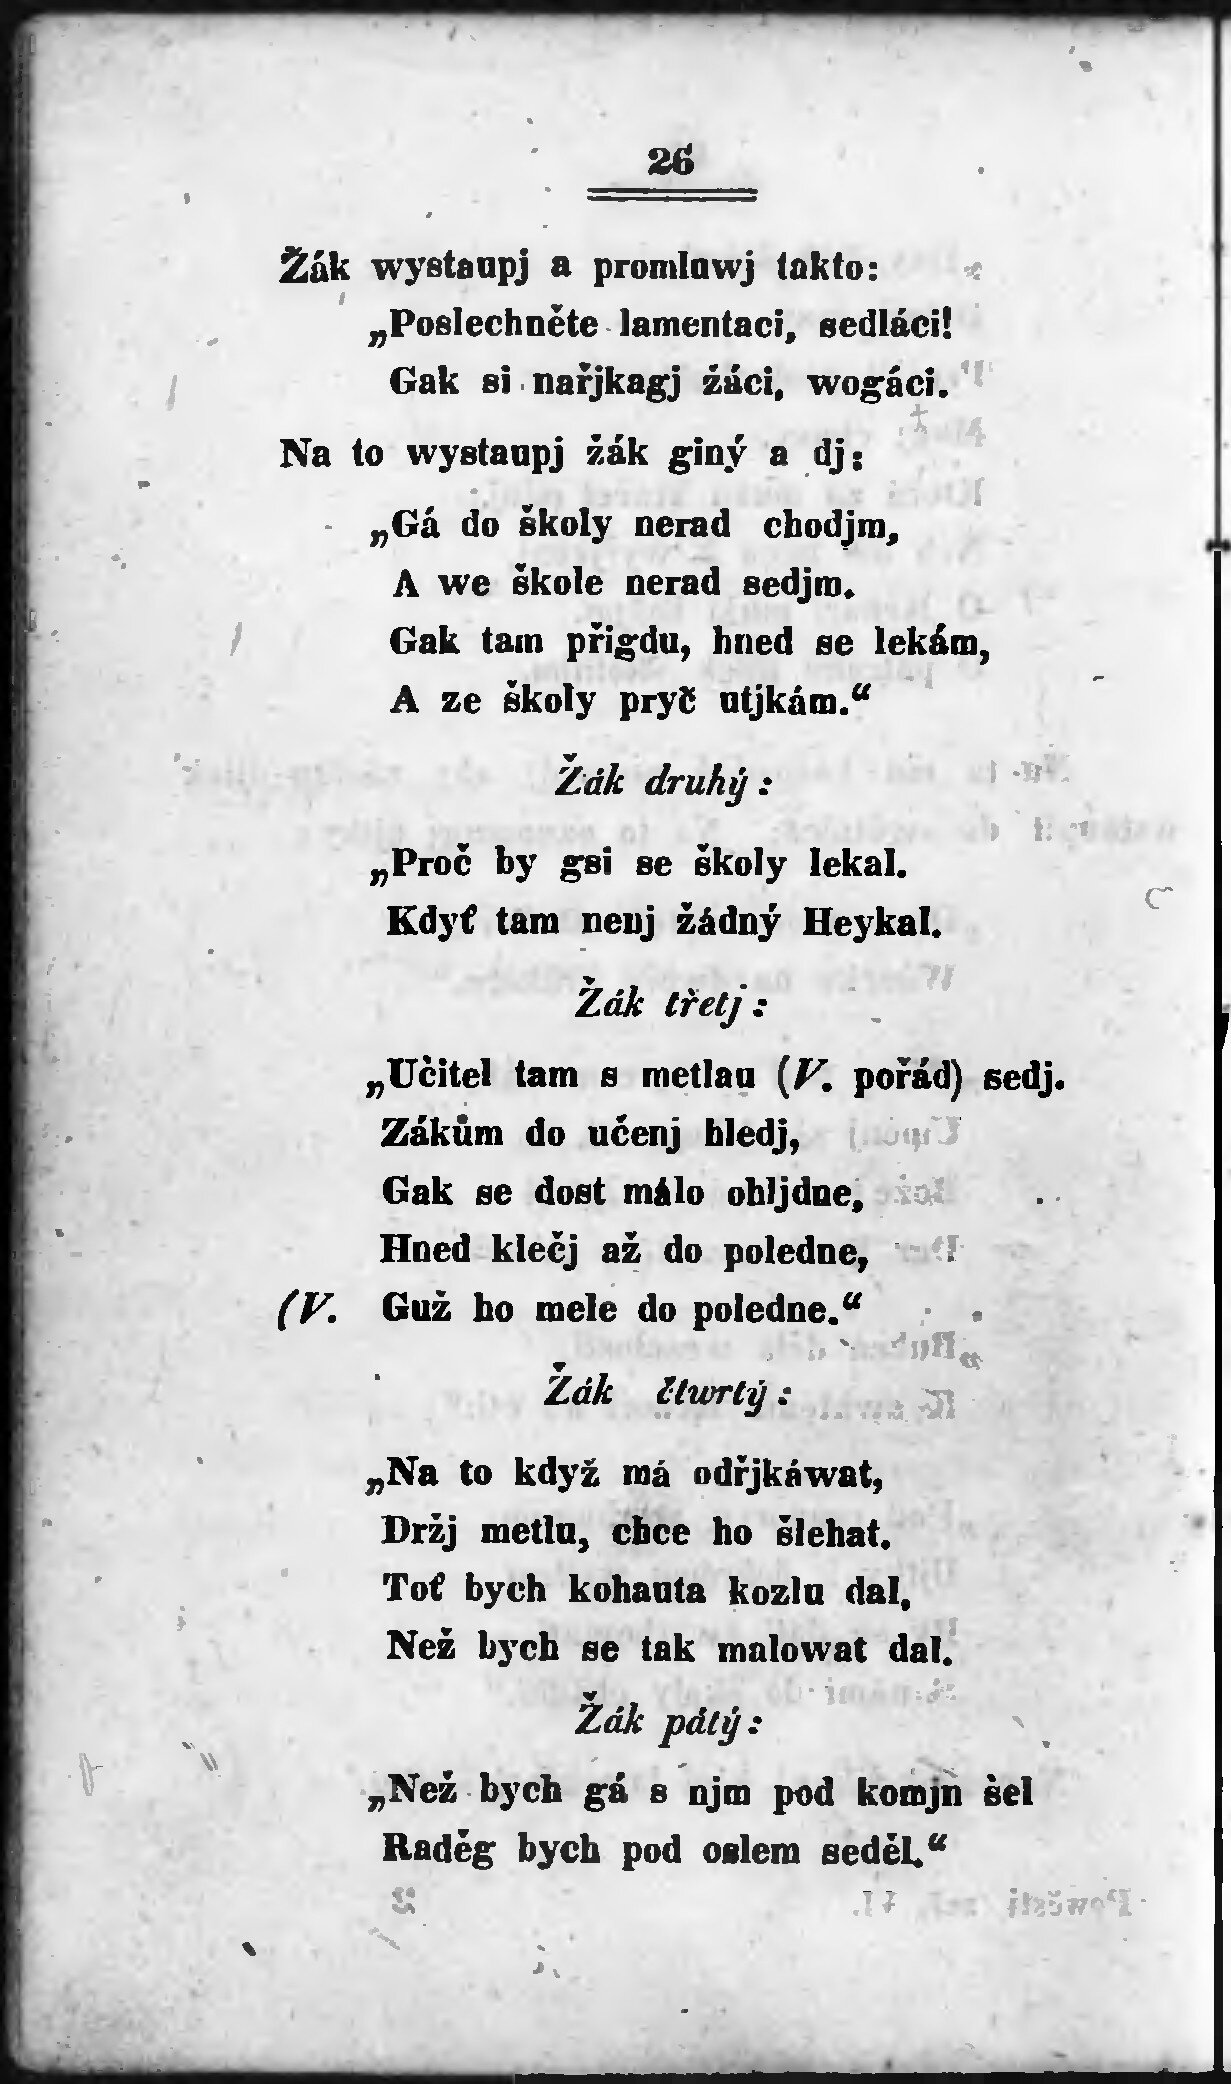 26
Žák wystaupj a promluwj takto:
„Poslechněte lamentaci, sedláci!
Gak si nařjkagj žáci, wogáci.
Na to wystaupj žák giný a dj:
„Gá do školy nerad chodjm,
A we škole nerad sedjm.
Gak tam přigdu, hned se lekám,
A ze školy pryč utjkám.“
Žák druhý:
„Proč by gsi se školy lekal.
Kdyť tam nenj žádný Heykal.
Žák třetj:
„Učitel tam s metlau (V. pořád) sedj.
Zákům do učenj hledj,
Gak se dost málo ohljdne,
Hned klečj až do poledne,
(V. Guž ho mele do poledne.“
Žák čtwrtý:
„Na to když má odřjkáwat,
Držj metlu, chce ho šlehat.
Toť bych kohauta kozlu dal,
Než bych se tak malowat dal.
Žák pátý:
„Než bych gá s njm pod komjn šel
Raděg bych pod oslem seděl.“